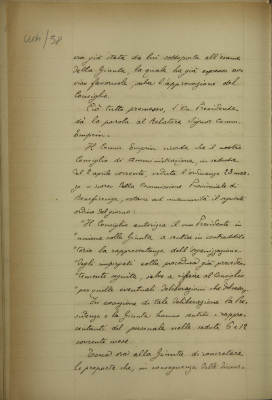 58
era già stata da lui sottoposta all'esame
della Giunta, la quale ha già espresso pa-
rere favorevole, salva l'approvazione del
Consiglio.
Ciò tutto premesso, l'On. Presidente
dà la parola al Relatore Signor Comm.
Emprin.
Il Comm. Emprin ricorda che il nostro
Consiglio di Amministrazione, in seduta
del 2 aprile corrente, veduta l'ordinanza 23 mar-
zo della Commissione Provinciale di
Beneficenza, votava ad unanimità il seguente
ordine del giorno:
"Il Consiglio autorizza il suo Presidente in
"unione colla Giunta, a sentire in contraddit-
"torio la rappresentanza dell'organizzazione
"degli impiegati nella procedura già preceden-
"temente seguita, salvo a riferire al Consiglio
"per quelle eventuali deliberazioni che
In esecuzione di tale deliberazione la Pre-
sidenza e la Giunta hanno sentito i rappre-
sentanti del personale nelle sedute 6 e 12
corrente mese.
ora alla Giunta di concretare
le proposte che, in conseguenza delle